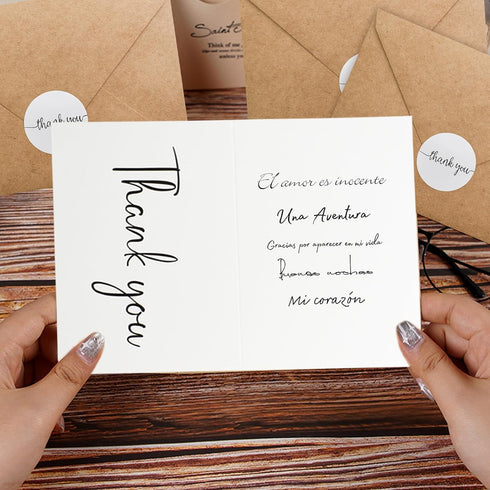 Saint
Think of me
thank you
thank you
Thank you
El amor es inocente
Una Aventura
Gracias por aparecer en mi vida
Buenas noches
Mi corazón